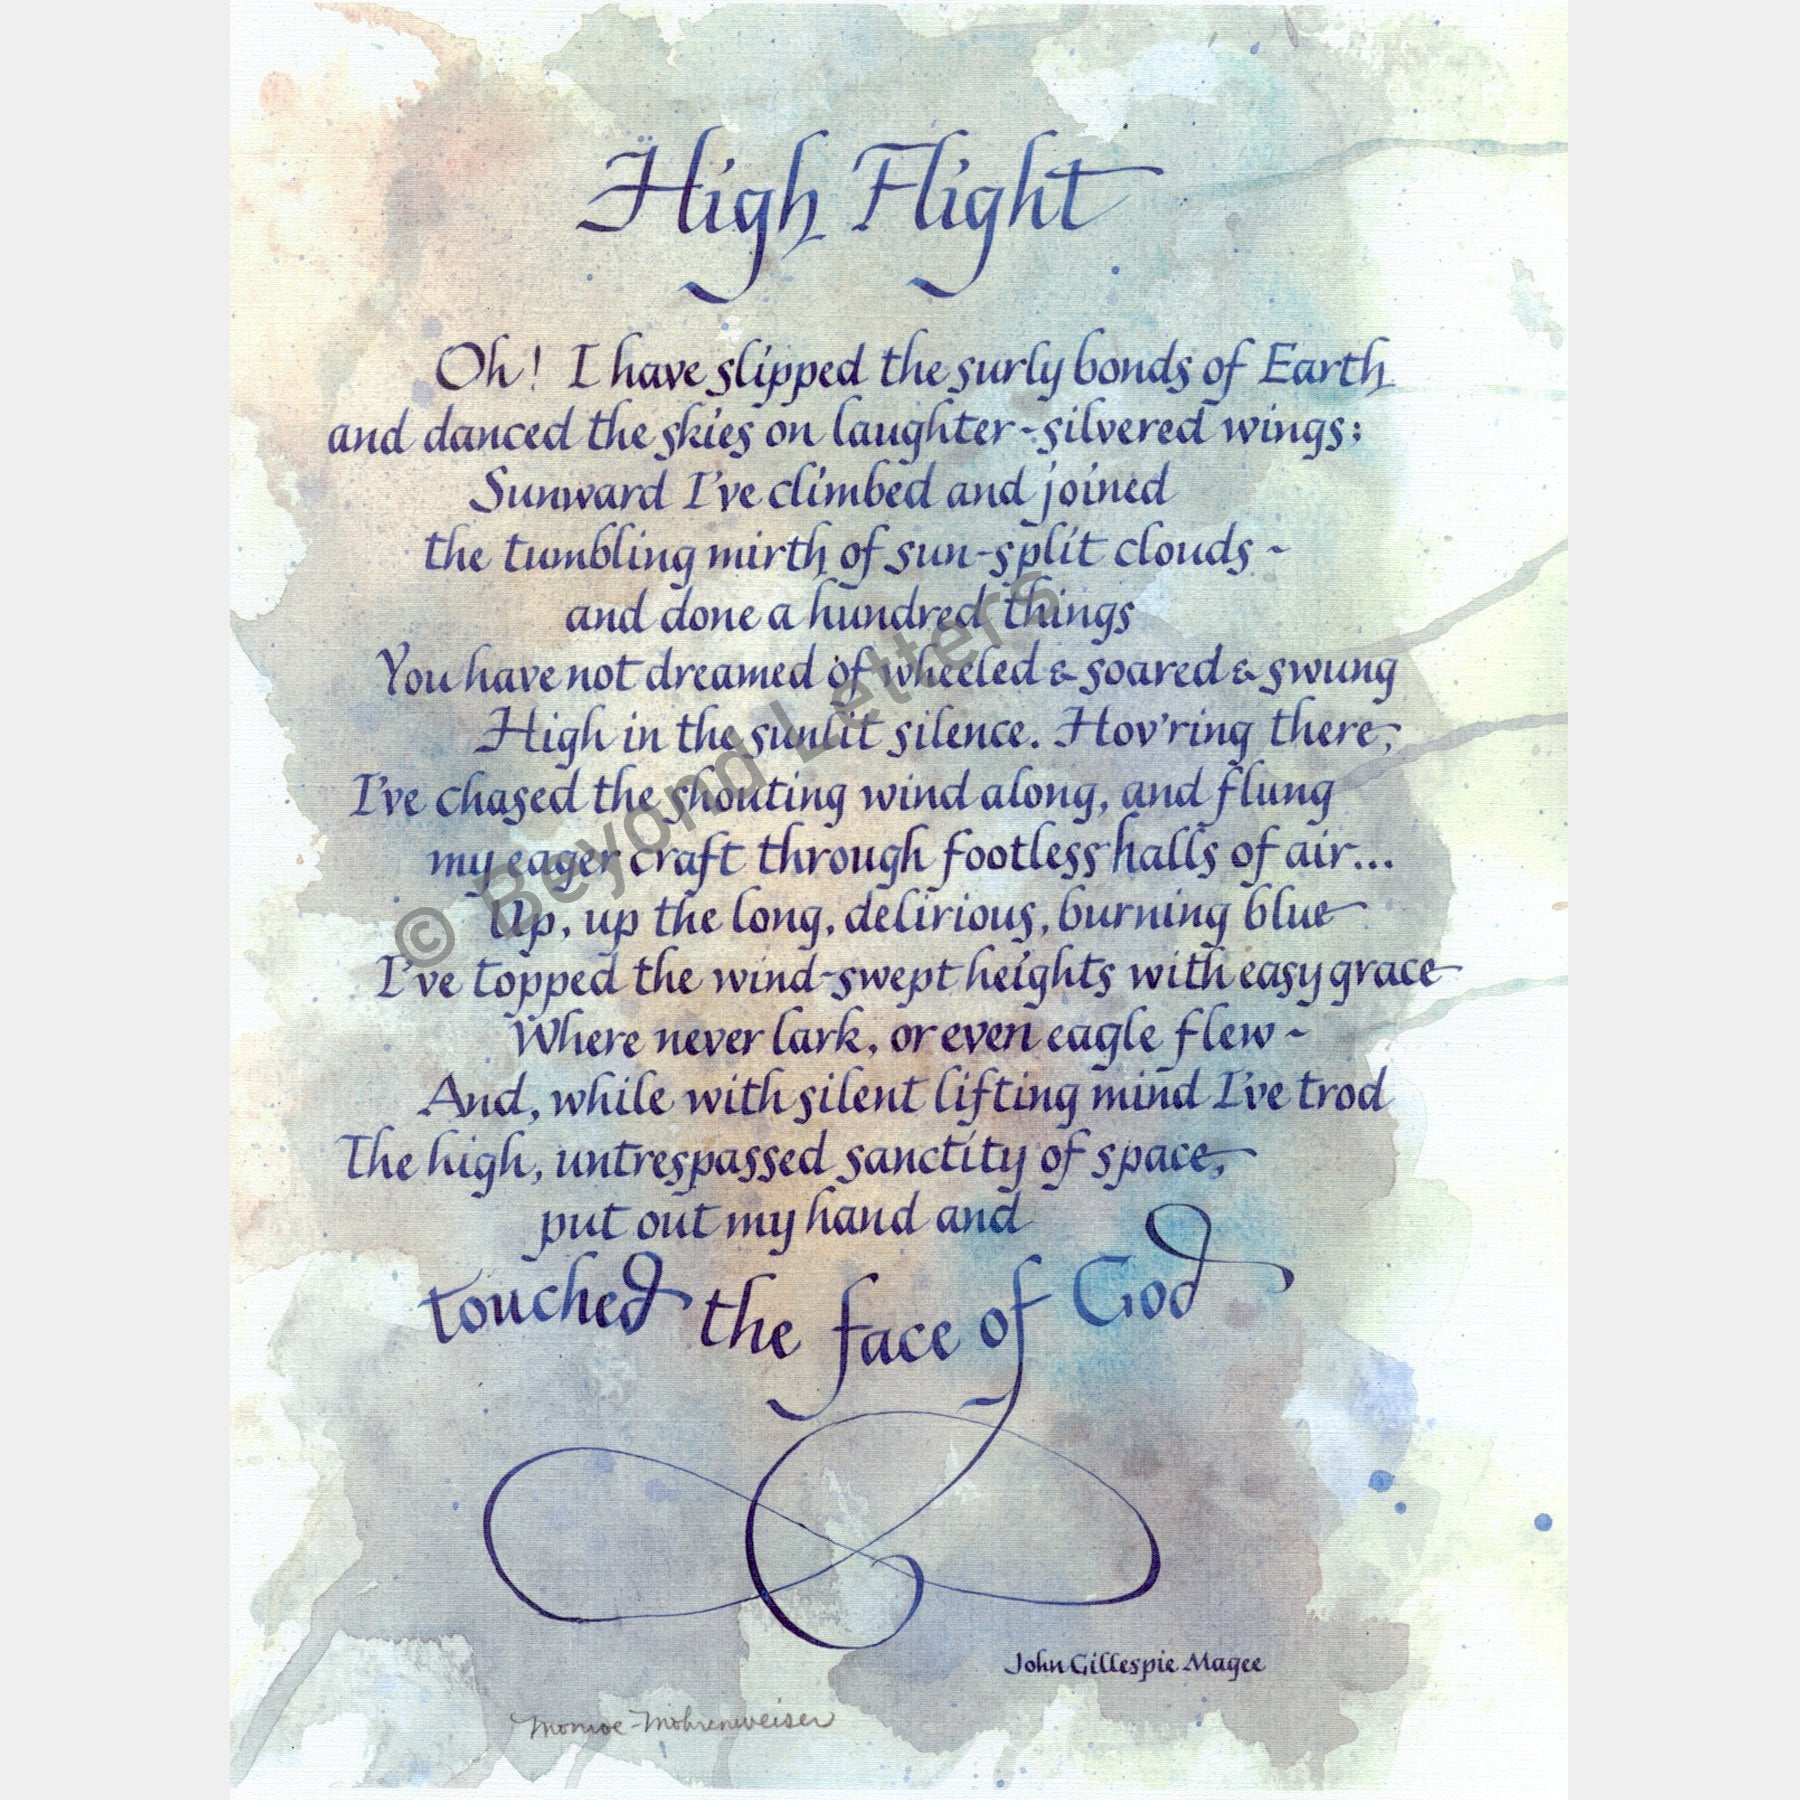 High Flight
Oh! I have slipped the surly bonds of Earth
and danced the skies on laughter-silvered wings;
Sunward I've climbed and joined
the tumbling mirth of sun-split clouds ~
and done a hundred things
You have not dreamed of wheeled & soared & swung
High in the sunlit silence. Hov'ring there,
I've chased the shouting wind along, and flung
my eager craft through footless halls of air...
Up, up the long, delirious, burning blue
I've topped the wind-swept heights with easy grace
Where never lark, or even eagle flew ~
And, while with silent lifting mind I've trod
The high, untrespassed sanctity of space,
put out my hand and
touched the face of God
John Gillespie Magee
Monroe-Mohrenweiser
© Beyond Letters